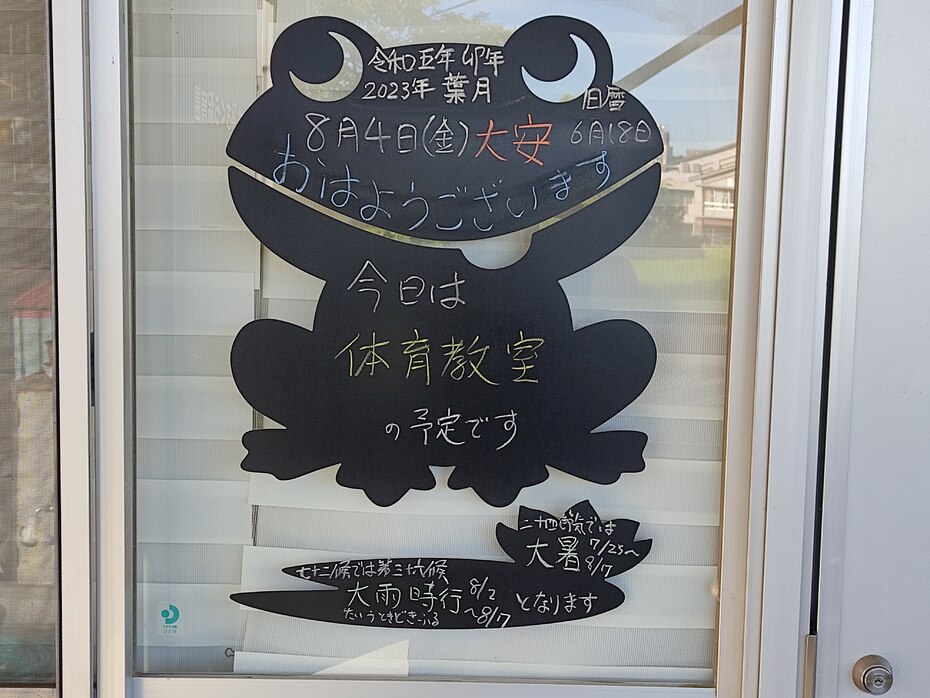 令和五年 卯年
2023年 葉月
旧暦
8月4日(金)大安 6月18日
おはようございます
今日は
体育教室
の予定です
二十四節気では
大暑 7/23〜
8/7
七十二候では第三十六候
大雨時行 8/2
〜8/7 となります
たいうときどきふる